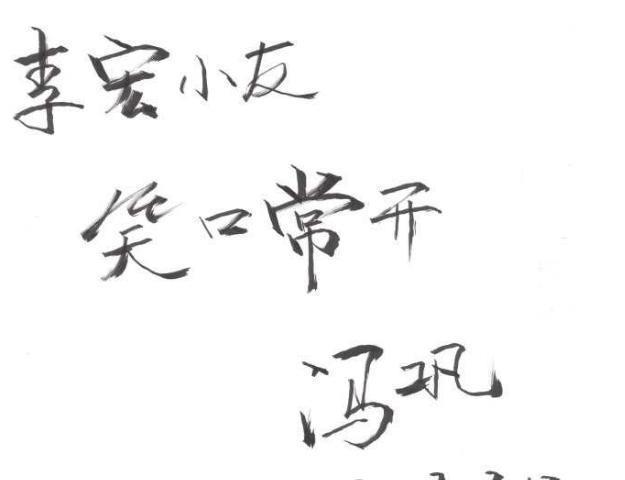 李宏小友
笑口常开
冯巩